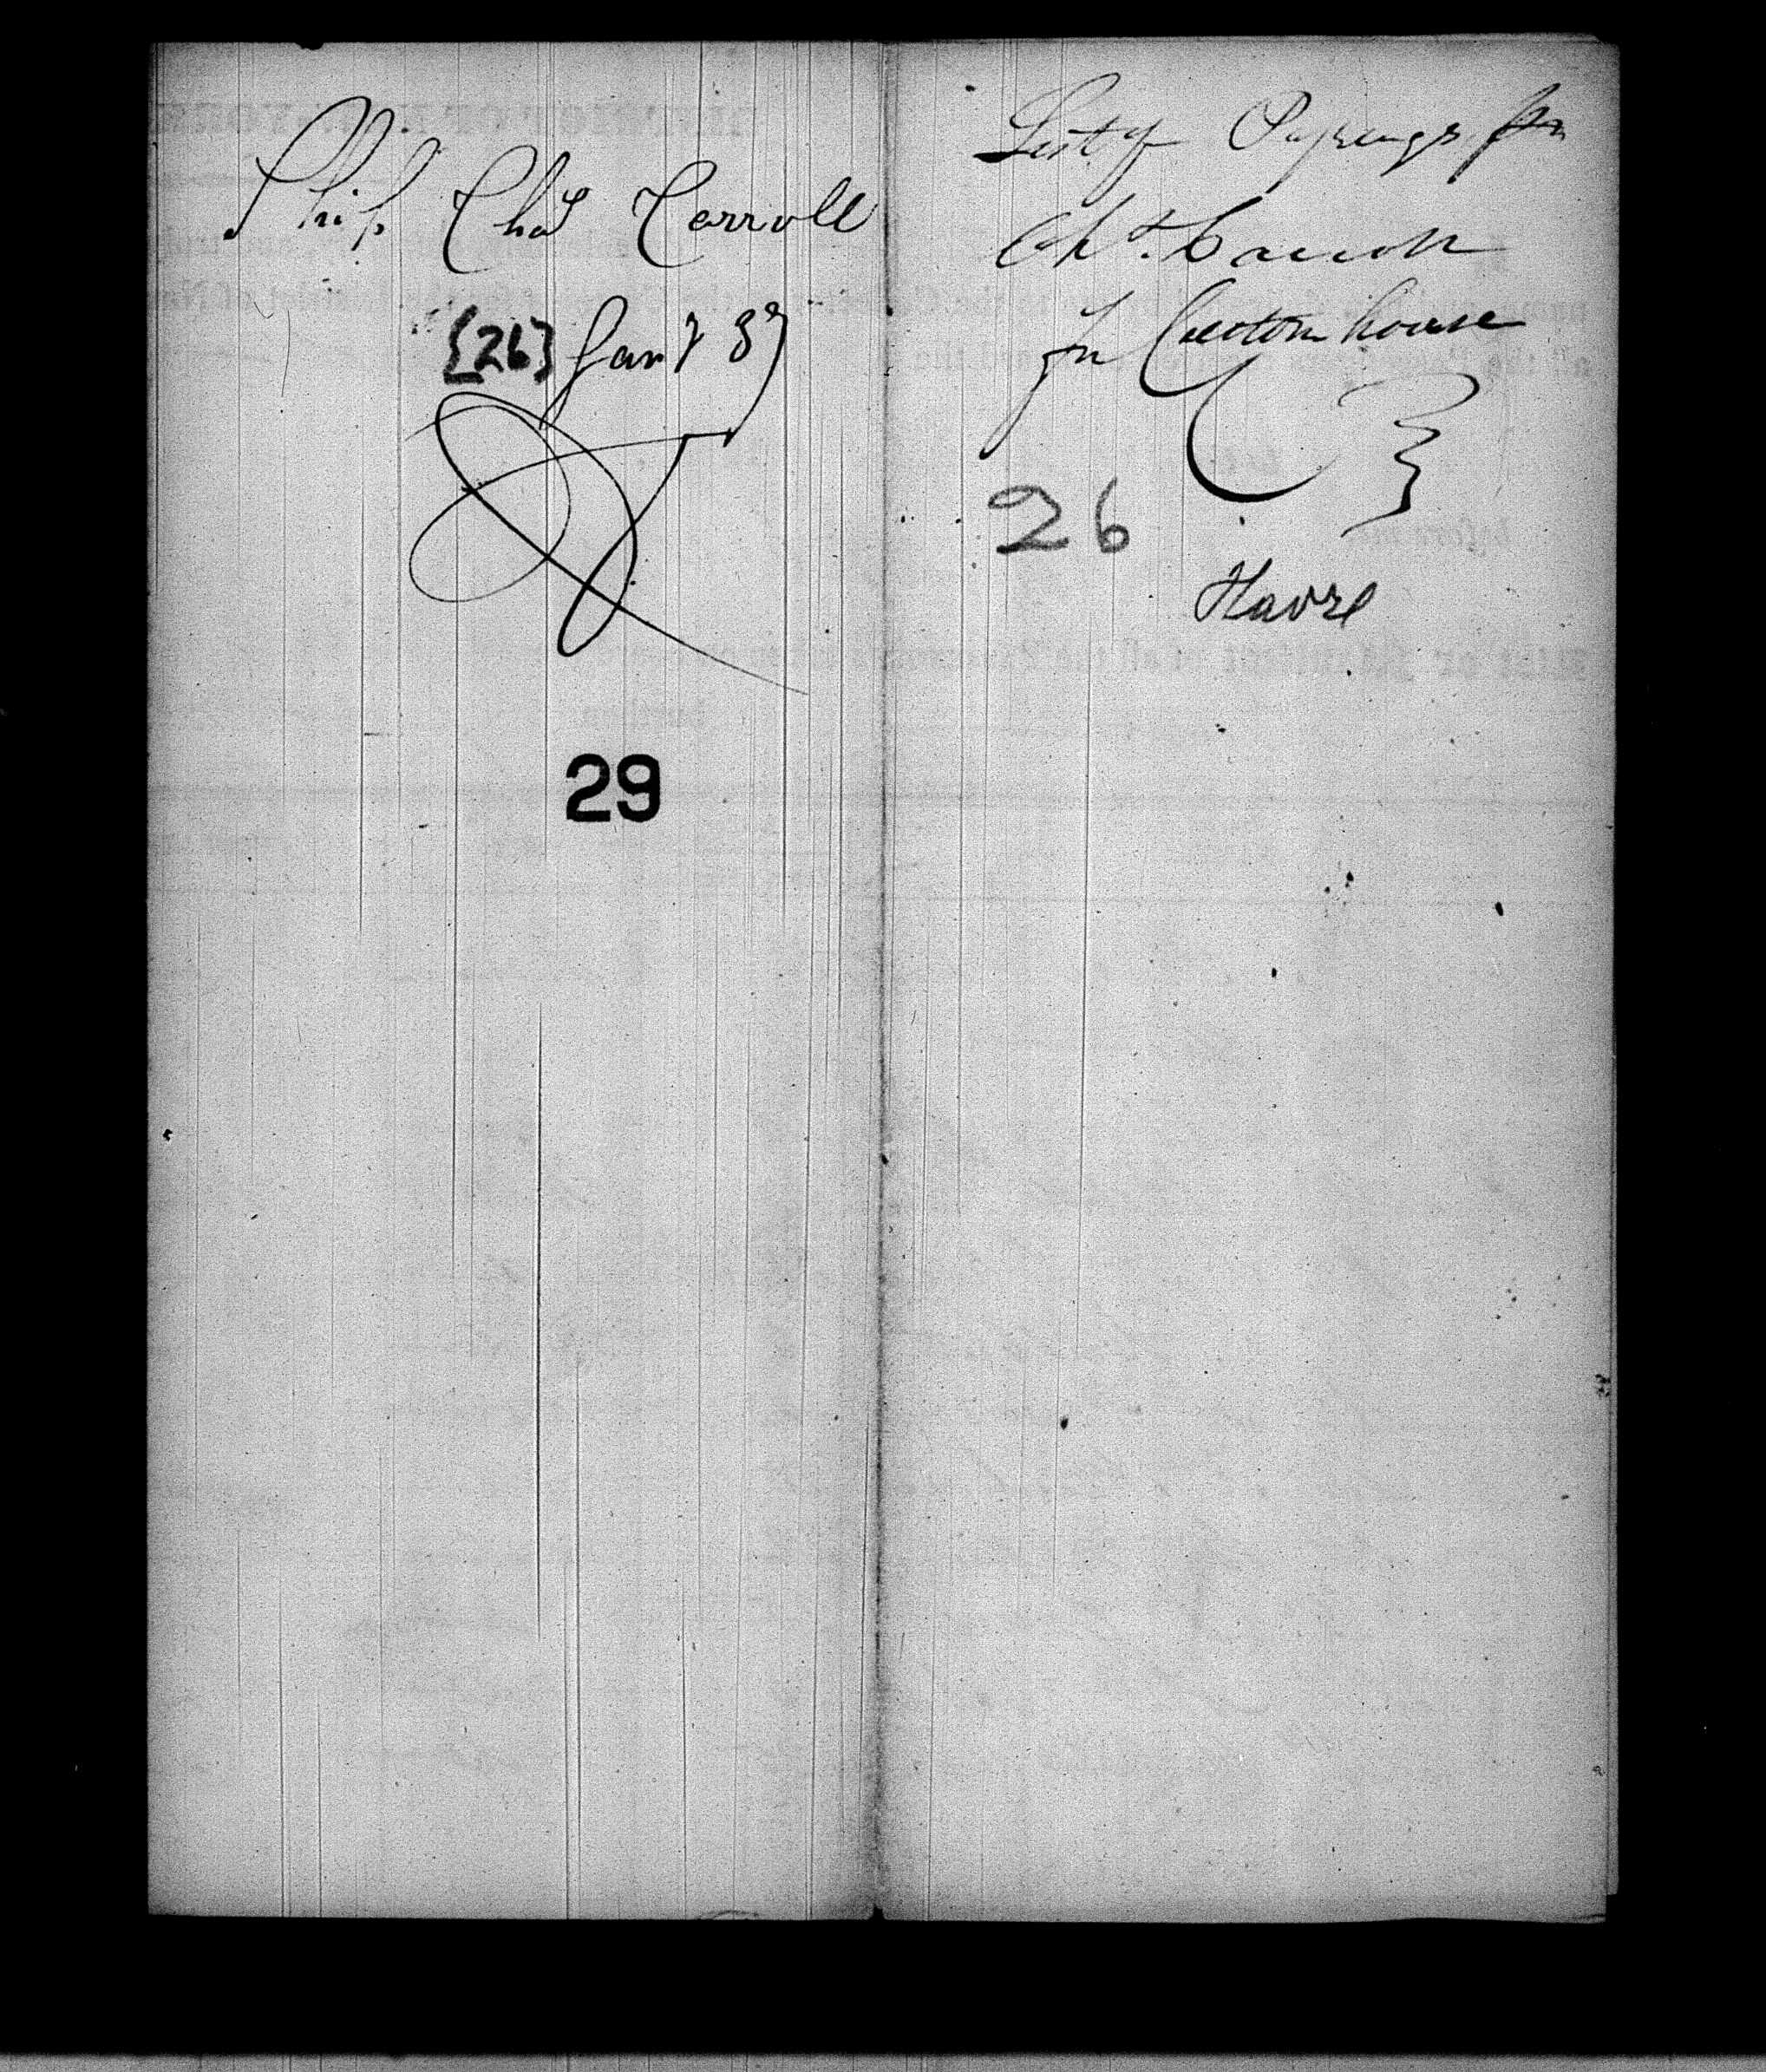 Ship Chas Carroll
{26} Jany 37
29
List of Passengers for
Chs. Carroll
for Custom house
26
Havre